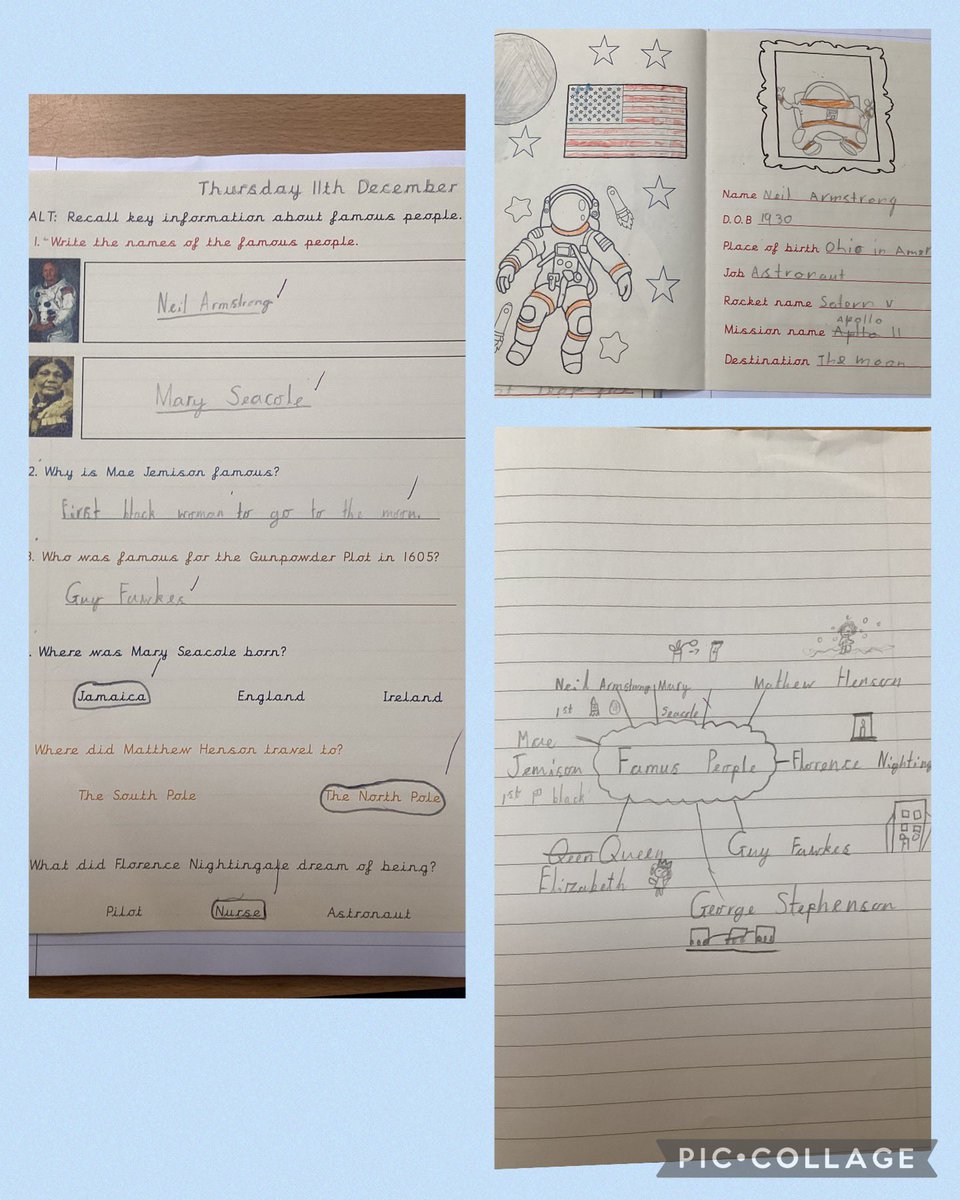 Thursday 11th December
ALT: Recall key information about famous people.
1. Write the names of the famous people.
Neil Armstrong
Mary Seacole
2. Why is Mae Jemison famous?
First black woman to go to the moon.
3. Who was famous for the Gunpowder Plot in 1605?
Guy Fawkes
. Where was Mary Seacole born?
Jamaica England Ireland
Where did Matthew Henson travel to?
The South Pole The North Pole
What did Florence Nightingale dream of being?
Pilot Nurse Astronaut
Name Neil Armstrong
D.O.B 1930
Place of birth Ohio in Amer
Job Astronaut
Rocket name Satern v
Apollo
Mission name 11
Destination The moon
Neil Armstrong Mary Seacole
1st
Mathew Henson
Mae Jemison
1st black
Famus People
Florence Nighting
Qeen Queen Elizabeth
Guy Fawkes
George Stephenson
PIC•COLLAGE